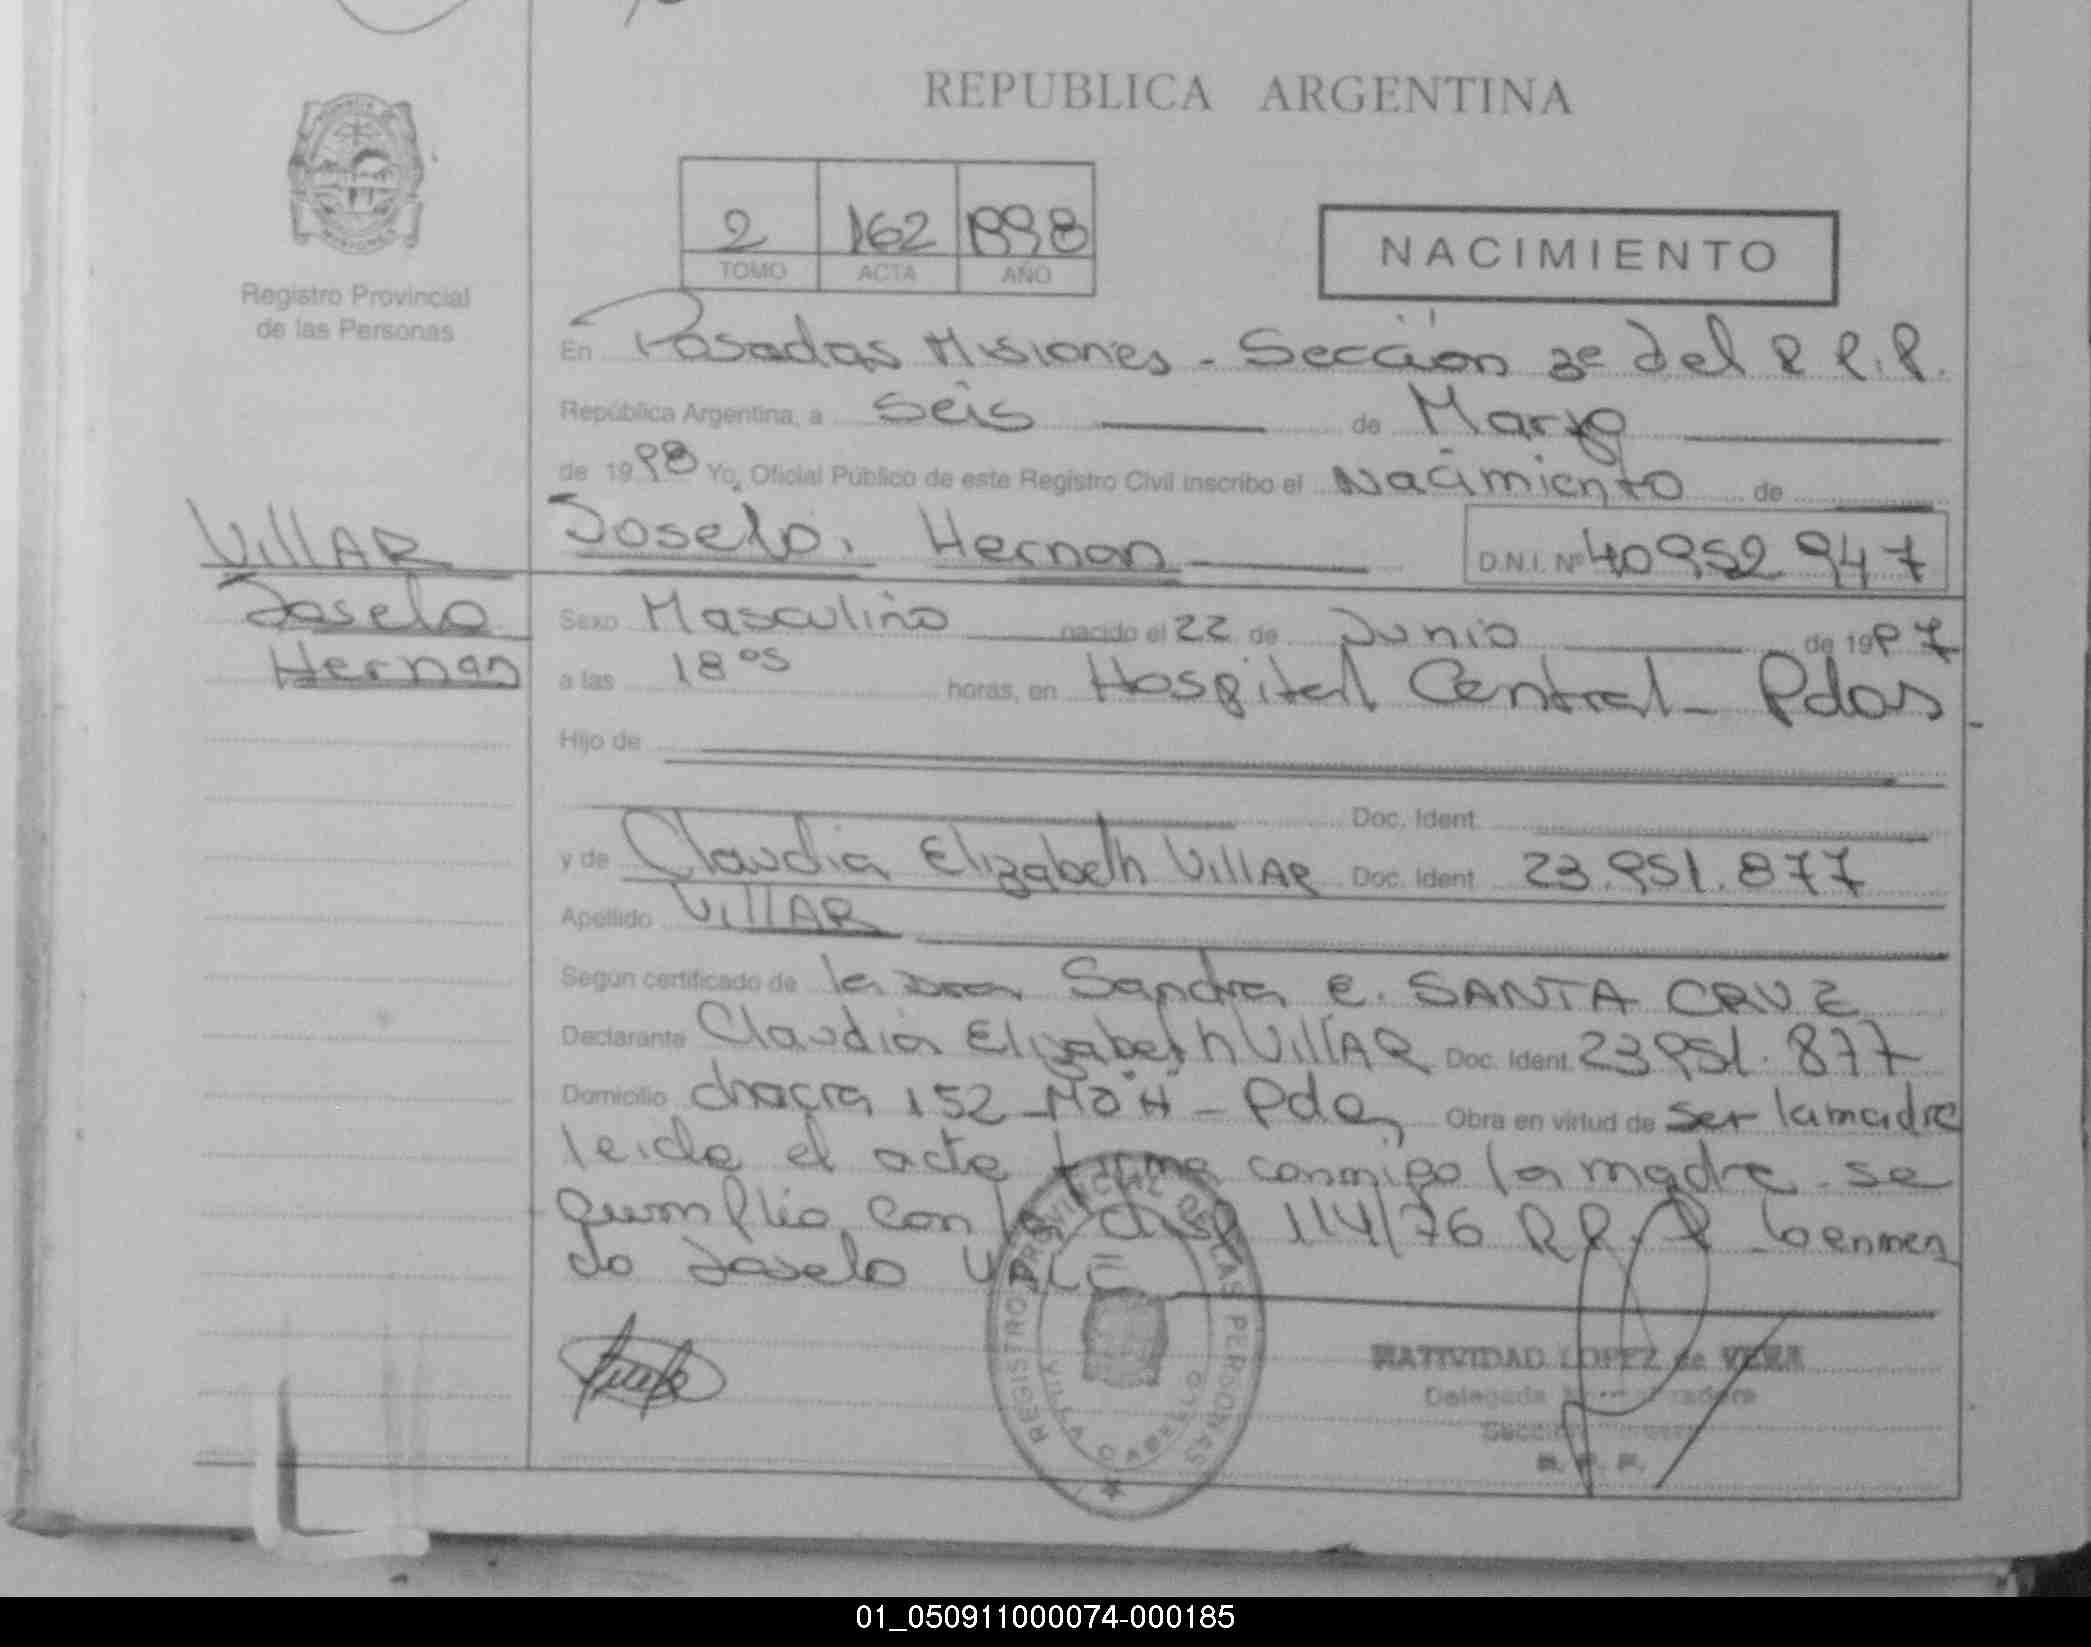 REPUBLICA ARGENTINA
2 162 1998
TOMO ACTA AÑO
NACIMIENTO
Registro Provincial
de las Personas
En Posadas Misiones - Sección 3º del R.P.P.
República Argentina, a seis de Marzo
de 1998 Yo, Oficial Público de este Registro Civil inscribo el Nacimiento de
Joselo, Hernan D.N.I. Nº 40952947
VillAR
Joselo
Hernan
Sexo Masculino nacido el 22 de Junio de 1997
a las 18 05 horas, en Hospital Central - Pdas.
Hijo de
Doc. Ident.
y de Claudia Elizabeth VillAR Doc. Ident. 23.951.877
Apellido VillAR
Según certificado de la Dra Sandra E. SANTA CRUZ
Declarante Claudia Elizabeth VillAR Doc. Ident. 23951.877
Domicilio chacra 152 - Pda, Obra en virtud de ser la madre
leida el acta firma conmigo la madre - se
cumplio con la disp 114/76 R.P.P lo enmen
do Joselo VALE
REGISTRO PROVINCIAL DE LAS PERSONAS
VILLA CABELLO
NATIVIDAD LOPEZ de VERA
Delegada
R. P. P.
01_050911000074-000185